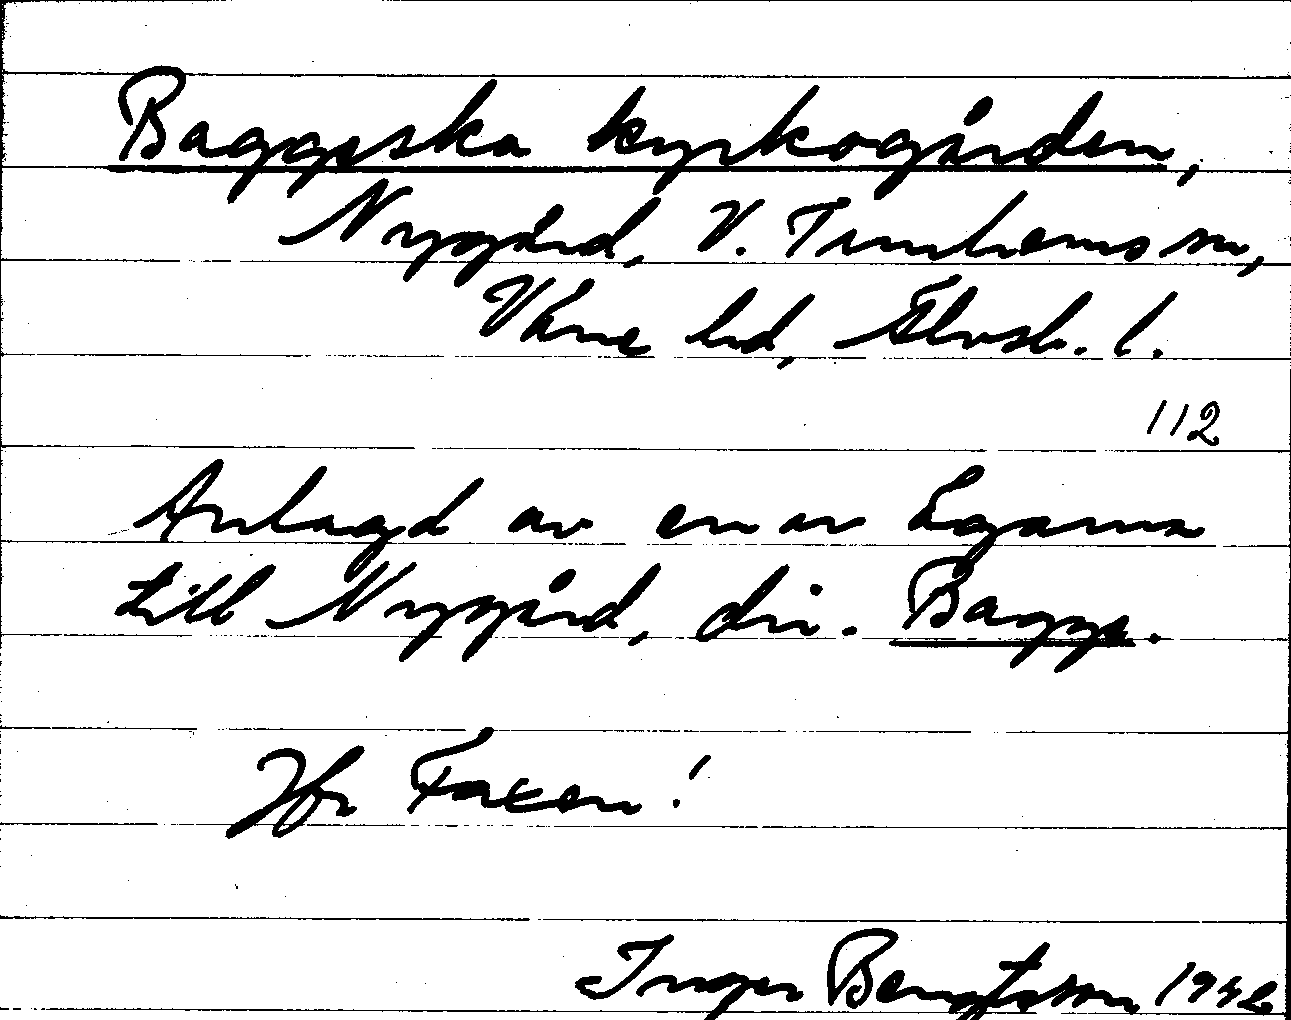 Baggeska kyrkogården,
Nygård, V. Tunhems sn,
Väne hd, Älvsb. l.
112
Anlagd av en av ägarna
till Nygård, dir. Bagge.
Jfr Faxen!
Inger Bengtsson 1942